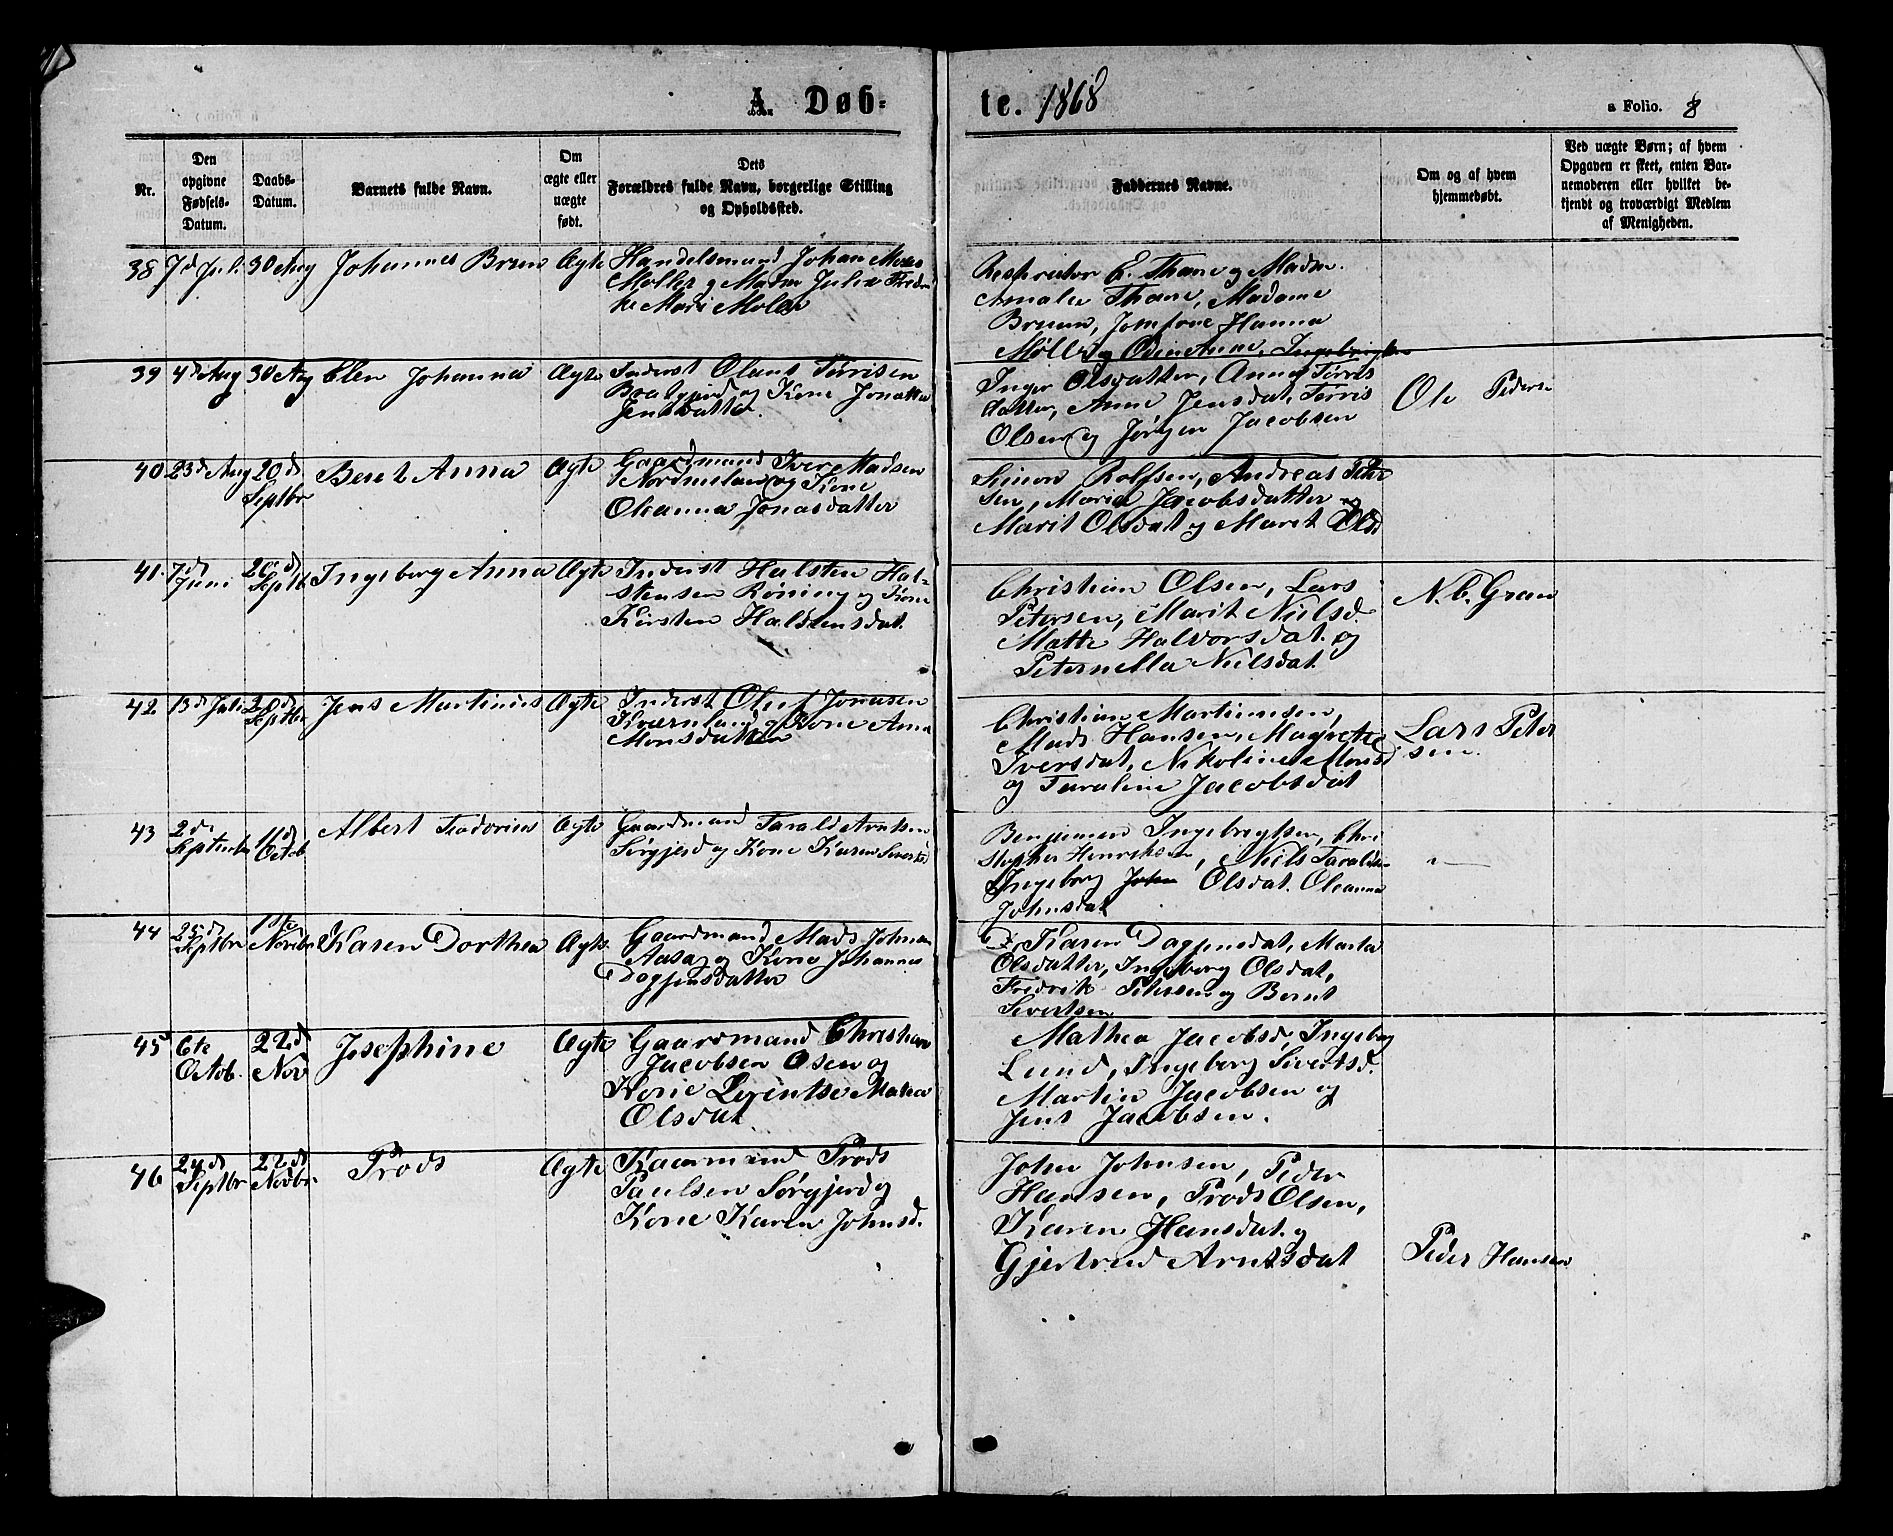 A. Døb-
te. 1868
a Folio. 8
Nr.
Den opgivne Fødsels-Datum.
Daabs-Datum.
Barnets fulde Navn.
Om ægte eller uægte født.
Dets Forældres fulde Navn, borgerlige Stilling og Opholdssted.
Faddernes Navne.
Om og af hvem hjemmedøbt.
Ved uægte Børn; af hvem Opgaven er skeet, enten Barnemoderen eller hvilket bekjendt og troværdigt Medlem af Menigheden.
38 7d Jul. 30 Aug Johannes Bruun Ægte
Handelsmand Johan Moses
Møller g Madm Julie Fredri
ke Marie Møler
E. Thane g Madm.
Amalie Thane, Madame
Bruun, Jomfrue Hanna
Møller g Odin Anne. Ingebrigtsen
39 4d Aug 30 Aug Elen Johanna Ægte
Inderst Olaus Tørrisen
og Kone Jonetta
Jensdatter.
Inger Olsdatter, Anne Tørris
datter, Anne Jensdat, Tørris
Olsen g Jørgen Jacobsen
Ole Peders
40 23d Aug 20d Septbr Beret Anna Ægte
Gaardmand Iver Madsen
Nordmeland og Kone
Oleanna Jonasdatter
Simon Rolfsen, Andreas Peter
sen, Maria Jacobsdatter
Marit Olsdat g Maret Olsd
41. 7d Juni 20d Septb Ingeborg Anna Ægte
Inderst Halsten Hal-
stensen Røning g Kone
Kirsten Haldensdat.
Christian Olsen, Lars
Petersen, Marit Nielsd.
Matte Halvorsdat. og
Peternella Nielsdat
N. C. Gran
42. 13d Juli 20d Septbr Jens Martinus Ægte
Inderst Oluf Jonasen
Kværnland g Kone Anna
Monsdatter
Christian Martinusen,
Mads Hansen, Magrete
Iversdat, Nikoline Monsd
og Taraline Jacobsdat
Lars Peter
sen.
43 2d Septembr 11d Octob Albert Teodorius Ægte
Gaardmand Tarald Arntsen
Sørgjerd og Kone Karen Sivertsd
Benjamin Ingebrigtsen, Chri
stopher Henriksen, Niels Taraldsen
Ingeborg John Olsdat. Oleanna
Johnsdat
"—
44 25d Septbr 1ste Novbr Karen Dorthea Ægte.
Gaardmand Mads Johnsen
Aasa og Kone Johannes
Dagfinsdatter
Karen Dagfinsdat, Marta
Olsdatter, Ingeborg Olsdat,
Fredrik Petersen g Bernt
Sivertsen
45 6te Octob. 22d Nov Josephine Ægte
Gaardmand Christian
Jacobsen Osen og
Kone Lorentse Matea
Olsdat
Mathea Jacobsd, Ingeborg
Lund, Ingeborg Sivertsd.
Martin Jacobsen og
Jens Jacobsen.
46 24d Septbr 22d Novbr. Prods Ægte
Kaarmand Prods
Paulsen Sørgjerd og
Kone Karen Johnsd.
John Johnsen, Peder
Hansen, Prods Olsen,
Karen Hansdat. g
Gjertrud Arntsdat
Peder Hansen